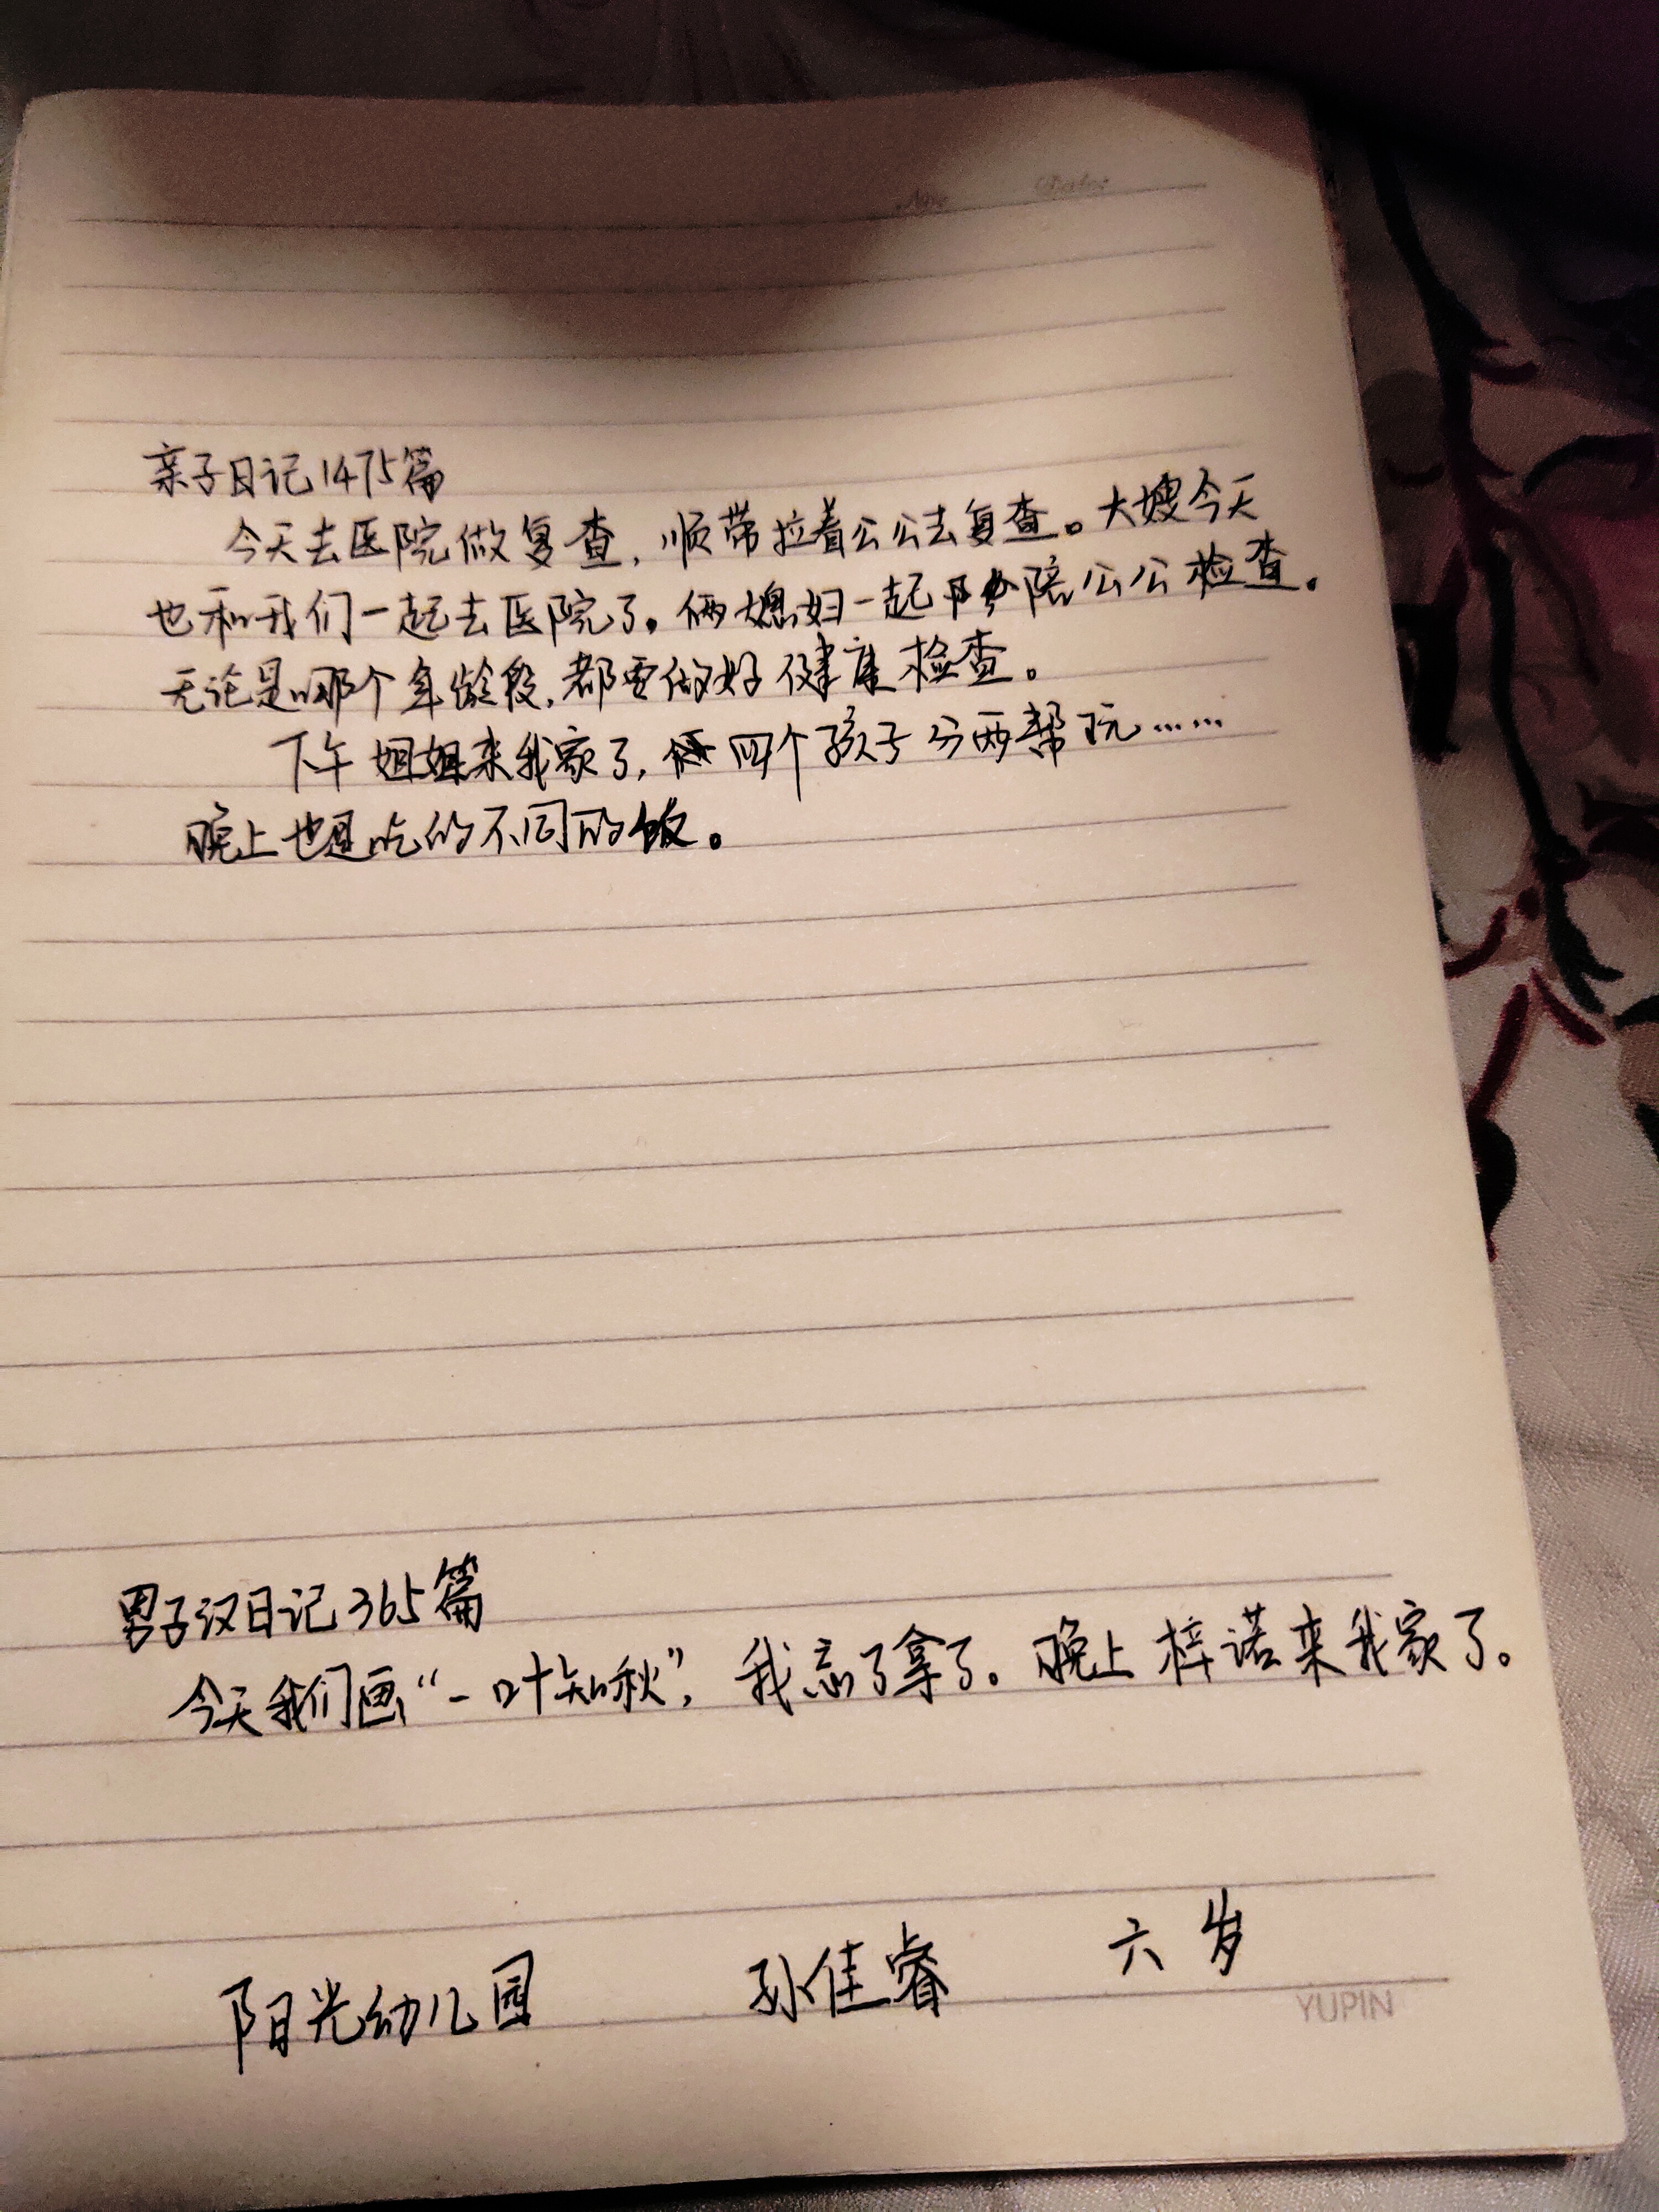 No. Date:
亲子日记1475篇
今天去医院做复查，顺带拉着公公去复查。大嫂今天
也和我们一起去医院了。俩媳妇一起陪公公检查。
无论是哪个年龄段，都要做好健康检查。
下午姐姐来我家了，四个孩子分两帮玩……
晚上也是吃的不同的饭。
男子汉日记365篇
今天我们画“一叶知秋”，我忘了拿了。晚上梓诺来我家了。
阳光幼儿园 孙佳睿 六岁
YUPIN